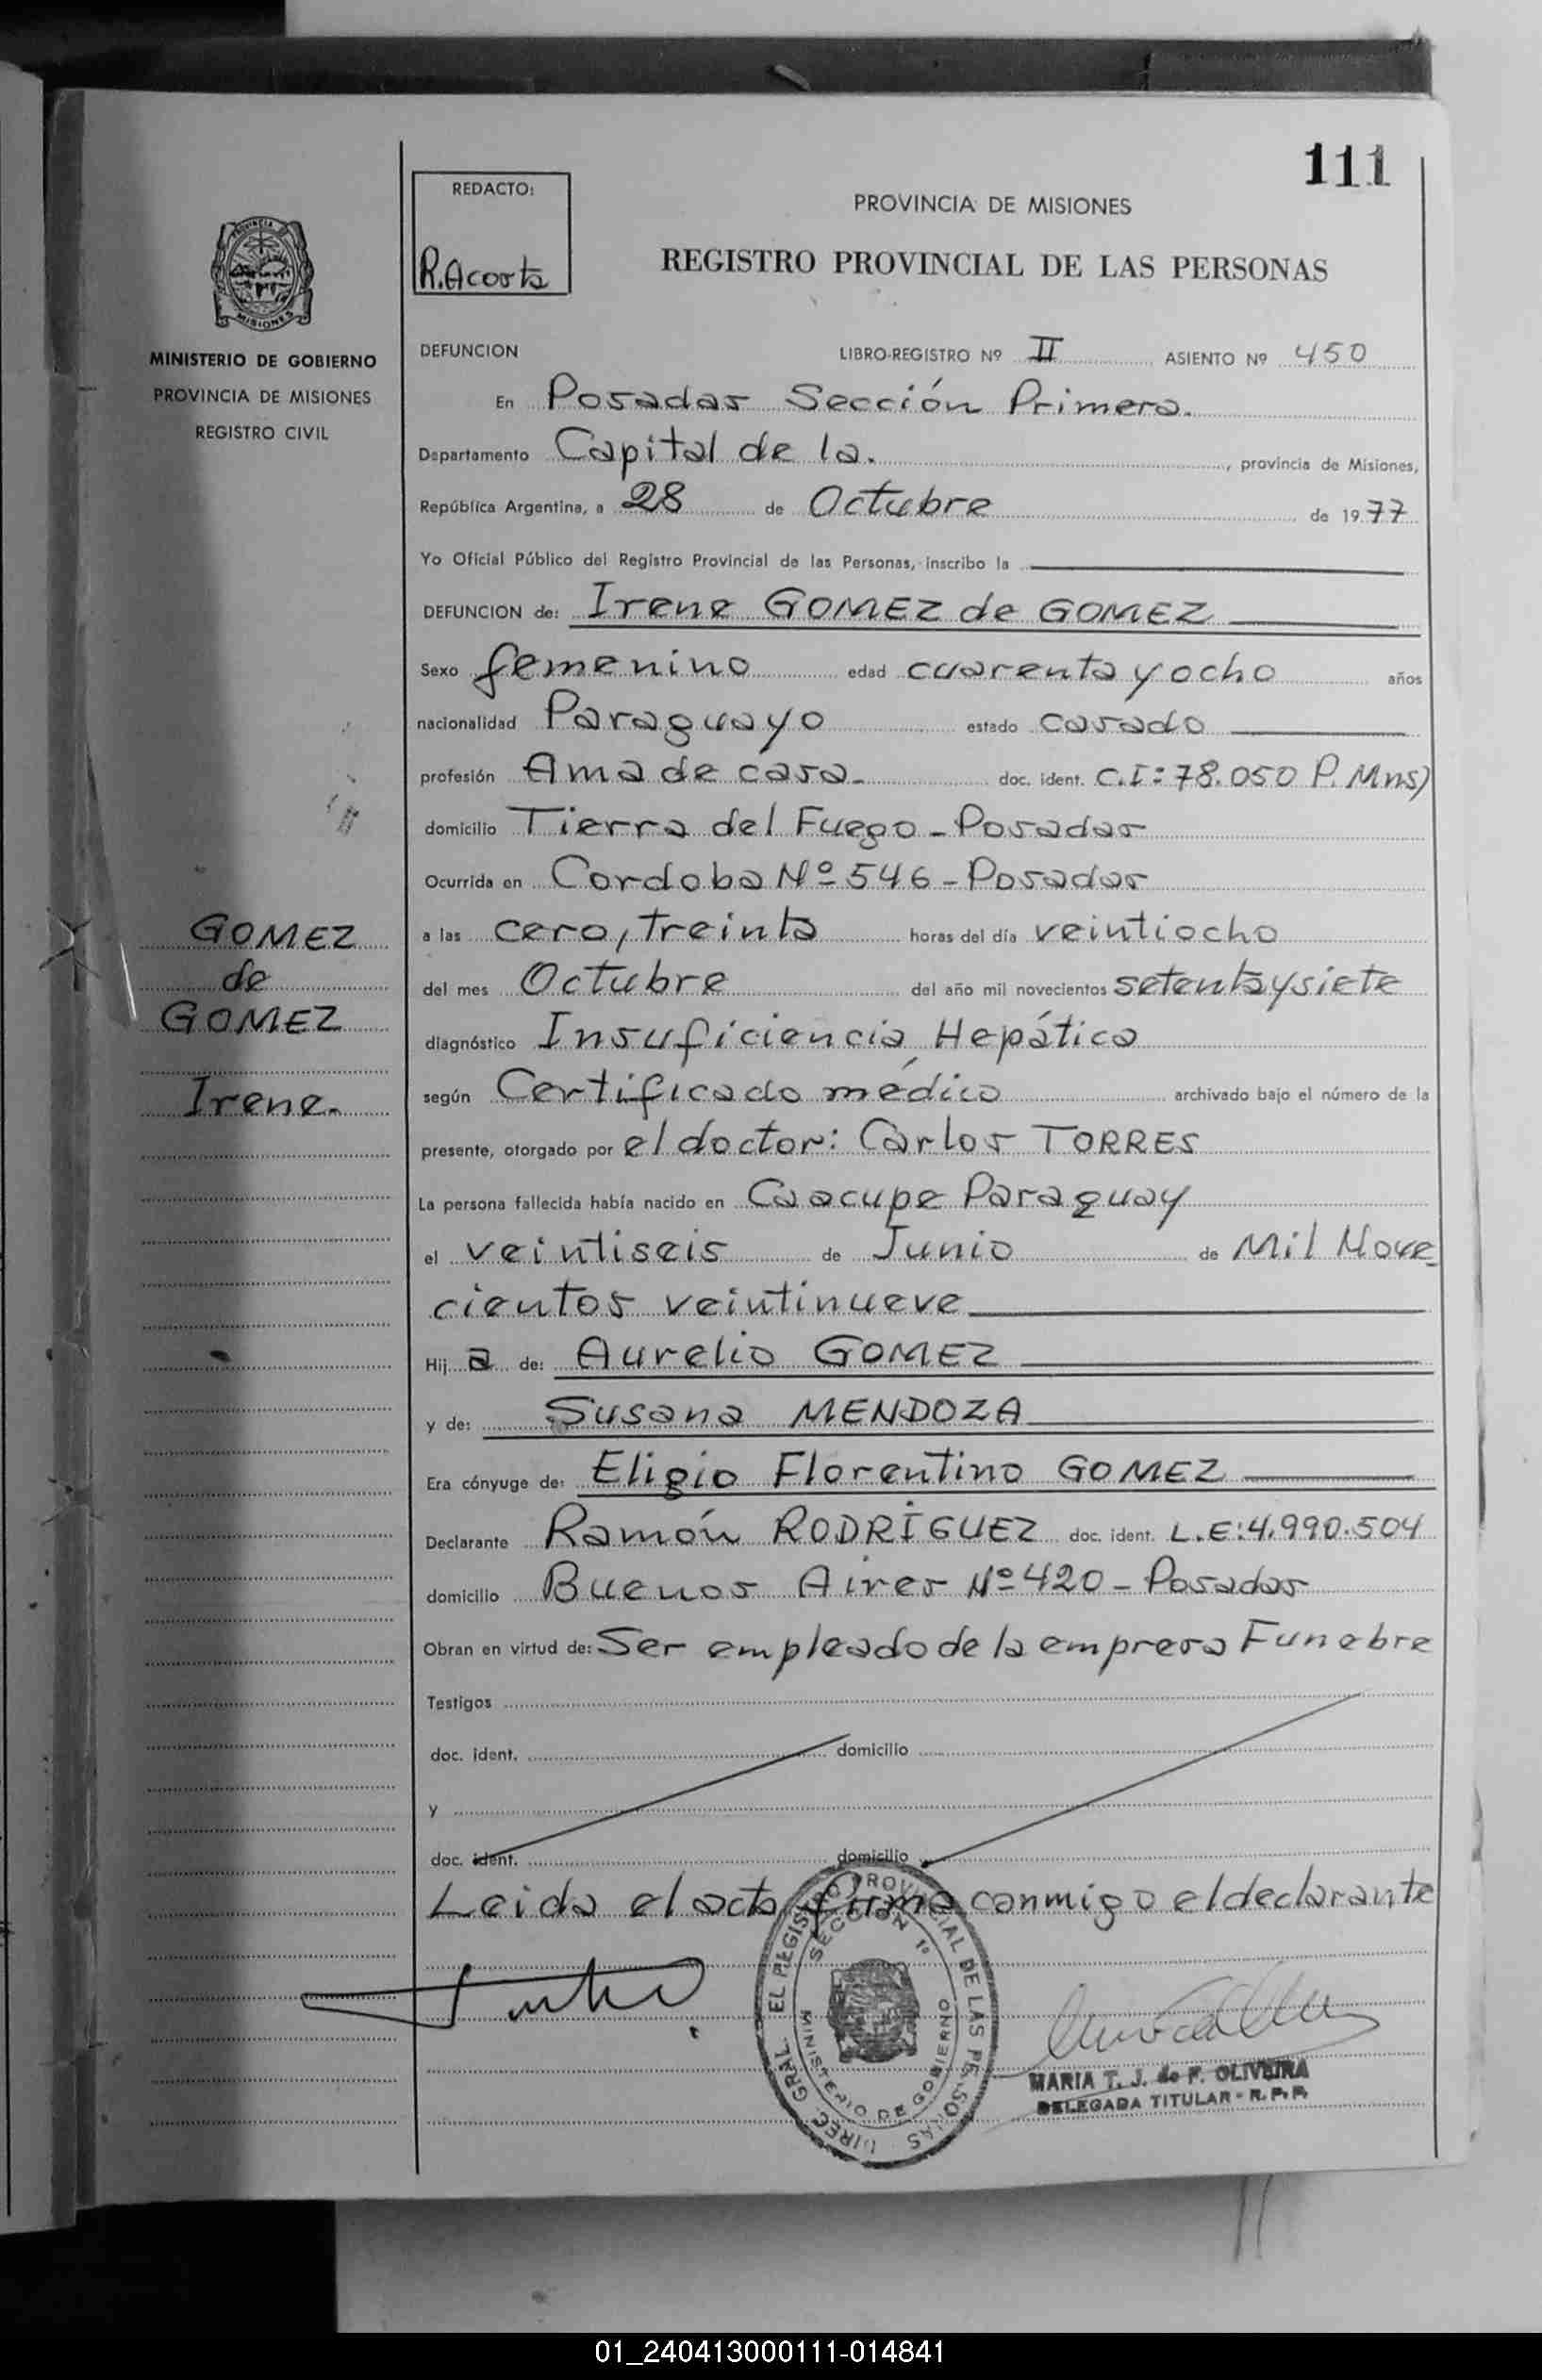 111
REDACTO:
R. Acosta
PROVINCIA DE MISIONES
REGISTRO PROVINCIAL DE LAS PERSONAS
PROVINCIA DE
MISIONES
MINISTERIO DE GOBIERNO
PROVINCIA DE MISIONES
REGISTRO CIVIL
DEFUNCION LIBRO-REGISTRO Nº II ASIENTO Nº 450
En Posadas Sección Primera.
Departamento Capital de la. , provincia de Misiones,
República Argentina, a 28 de Octubre de 1977
Yo Oficial Público del Registro Provincial de las Personas, inscribo la
DEFUNCION de: Irene GOMEZ de GOMEZ
Sexo femenino edad cuarenta y ocho años
nacionalidad Paraguaya estado casada
profesión Ama de casa. doc. ident. C.I: 78.050 P. Mns)
domicilio Tierra del Fuego - Posadas
Ocurrida en Cordoba Nº 546 - Posadas
a las cero, treinta horas del día veintiocho
del mes Octubre del año mil novecientos setenta y siete
diagnóstico Insuficiencia Hepática
según Certificado médico archivado bajo el número de la
presente, otorgado por el doctor: Carlos TORRES
La persona fallecida había nacido en Caacupe Paraguay
el veintiseis de Junio de Mil Nove
cientos veintinueve
Hij a de: Aurelio GOMEZ
y de: Susana MENDOZA
Era cónyuge de: Eligio Florentino GOMEZ
Declarante Ramón RODRÍGUEZ doc. ident. L.E: 4.990.504
domicilio Buenos Aires Nº 420 - Posadas
Obran en virtud de: Ser empleado de la empresa Funebre
Testigos
doc. ident. domicilio
y
doc. ident. domicilio
Leida el acta firma conmigo el declarante
GOMEZ
de
GOMEZ
Irene.
DIREC. GRAL. EL REGISTRO PROVINCIAL DE LAS PERSONAS
SECCION 1º
MINISTERIO DE GOBIERNO
MARIA T. J. de F. OLIVEIRA
DELEGADA TITULAR - R. P. P.
01_240413000111-014841